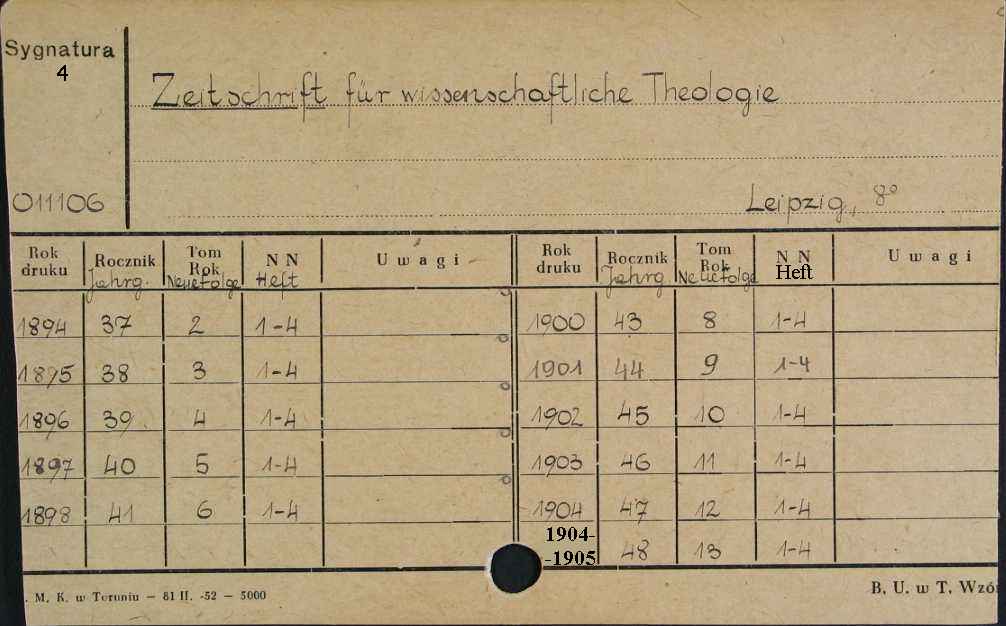 Sygnatura
4
Zeitschrift für wissenschaftliche Theologie
011106
Leipzig, 8°
Rok druku Rocznik Jahrg. Tom Rok Neue Folge N N Heft Uwagi Rok druku Rocznik Jahrg. Tom Rok Neue Folge N N Heft Uwagi
1894 37 2 1-4 1900 43 8 1-4
1895 38 3 1-4 1901 44 9 1-4
1896 39 4 1-4 1902 45 10 1-4
1897 40 5 1-4 1903 46 11 1-4
1898 41 6 1-4 1904 47 12 1-4
1904-
-1905 48 13 1-4
. M. K. w Toruniu — 81 II. -52 — 5000
B. U. w T. Wzó